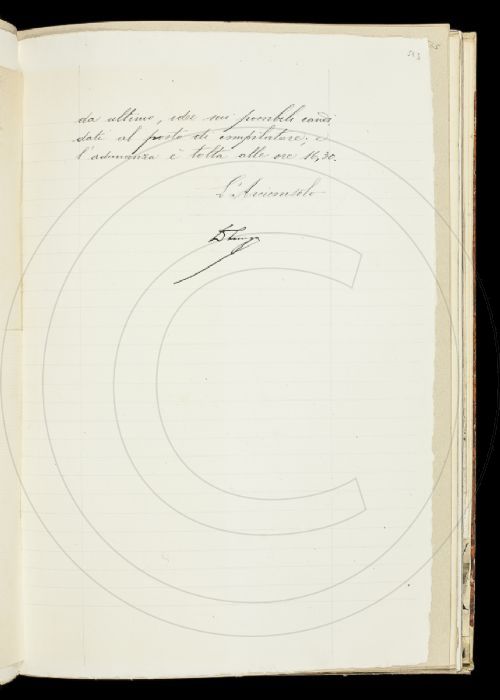 513
da ultimo, idee sui possibili candi
dati al posto di compilatore; e
l'adunanza è tolta alle ore 16,30.
L'Arciconsolo